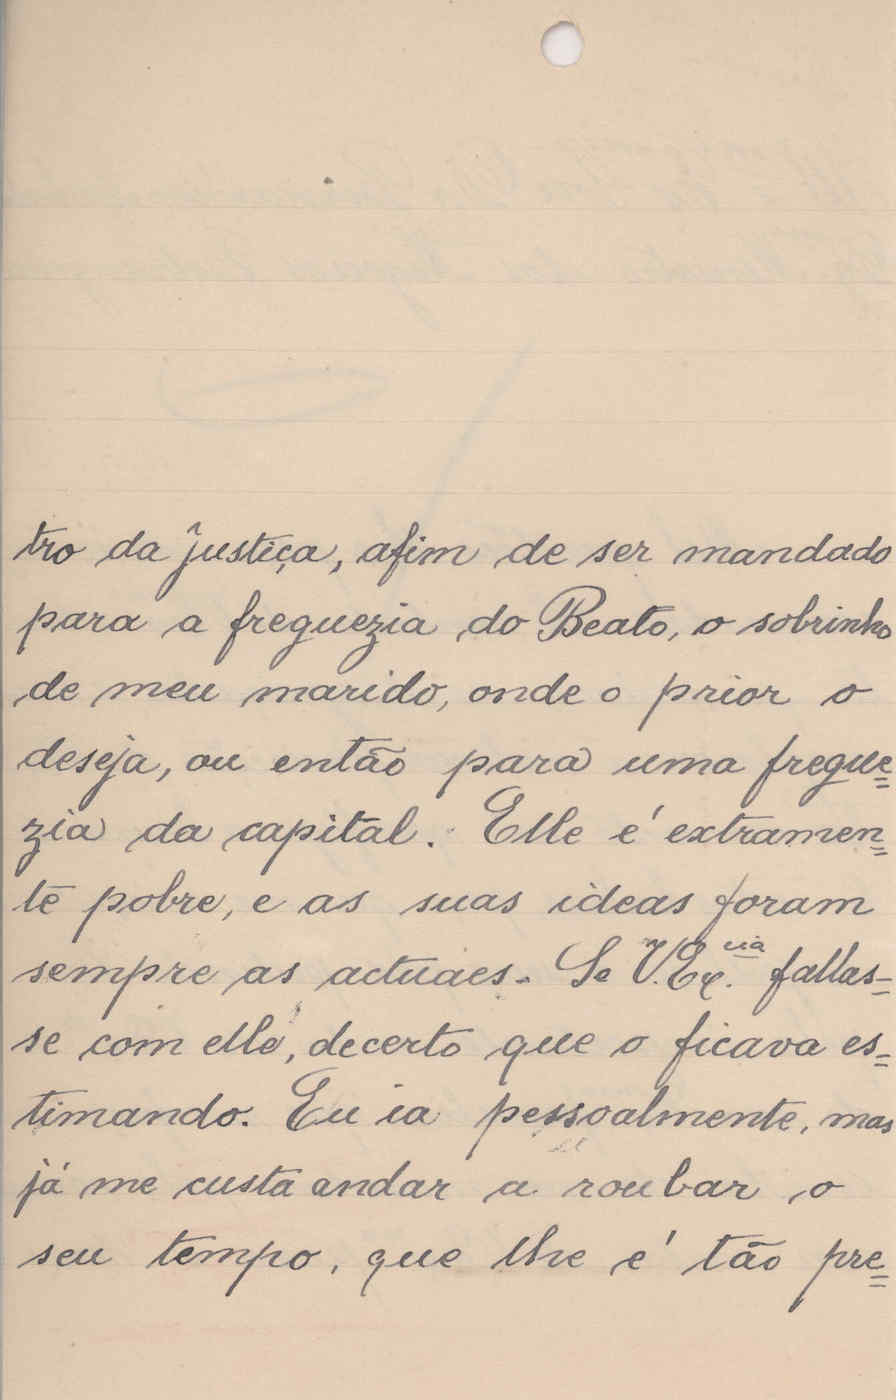 tro da justiça, afim de ser mandado
para a freguezia do Beato, o sobrinho
de meu marido, onde o prior o
deseja, ou então para uma fregue=
zia da capital. Elle é extramen=
te pobre, e as suas ideas foram
sempre as actuaes. Se V. Ex.cia fallas=
se com elle, decerto que o ficava es=
timando. Eu ia pessoalmente, mas
já me custa andar a roubar o
seu tempo, que lhe é tão pre=